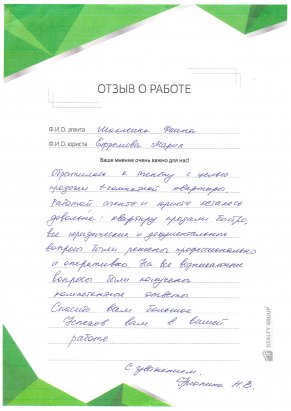 ОТЗЫВ О РАБОТЕ
Ф.И.О. агента Шакленка Фаина
Ф.И.О. юриста Ефремова Мария
Ваше мнение очень важно для нас!
Обратилась к агенту с целью
продажи 1-комнатной квартиры.
Работой агента и юриста осталась
довольна: квартиру продали быстро,
все юридические и документальные
вопросы были решены профессионально
и оперативно. На все возникающие
вопросы были получены
компетентные ответы.
Спасибо Вам большое.
Успехов вам в вашей
работе
С уважением,
Н.В.
REALTY GROUP